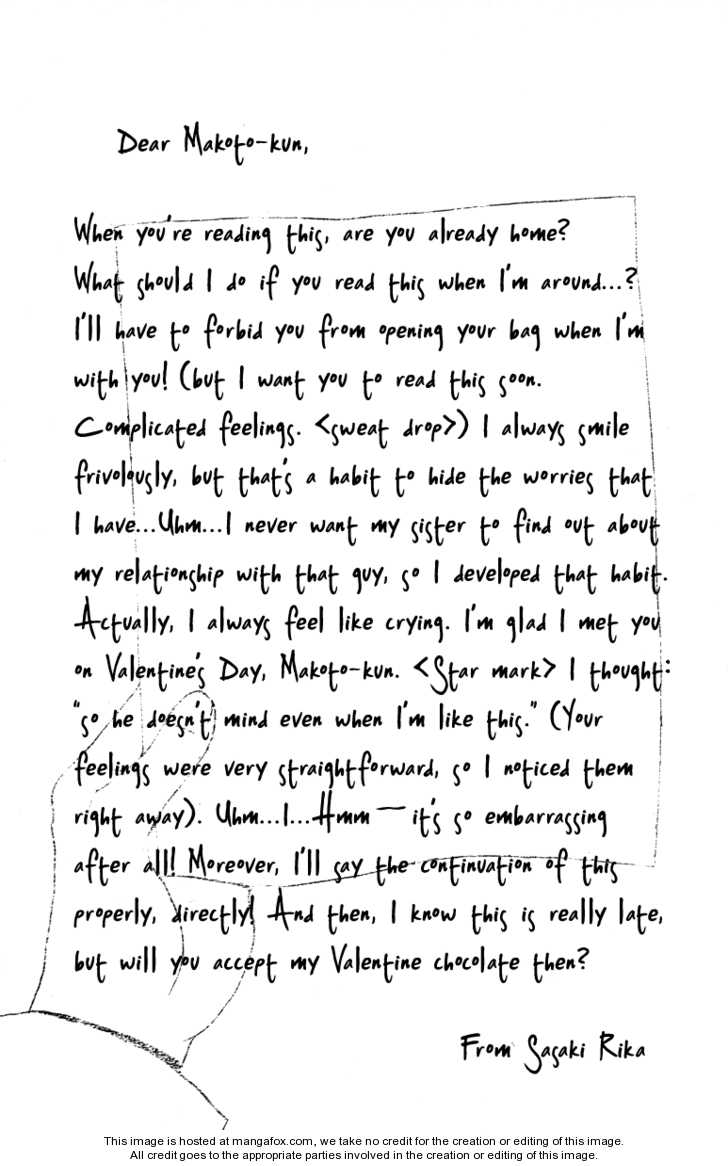 Dear Makoto-kun,
When you're reading this, are you already home?
What should I do if you read this when I'm around...?
I'll have to forbid you from opening your bag when I'm
with you! (but I want you to read this soon.
Complicated feelings. <sweat drop>) I always smile
frivolously, but that's a habit to hide the worries that
I have...Uhm...I never want my sister to find out about
my relationship with that guy, so I developed that habit.
Actually, I always feel like crying. I'm glad I met you
on Valentine's Day, Makoto-kun. <Star mark> I thought:
"so he doesn't mind even when I'm like this." (Your
feelings were very straightforward, so I noticed them
right away). Uhm...I...Hmm — it's so embarrassing
after all! Moreover, I'll say the continuation of this
properly, directly! And then, I know this is really late,
but will you accept my Valentine chocolate then?
From Sasaki Rika
This image is hosted at mangafox.com, we take no credit for the creation or editing of this image.
All credit goes to the appropriate parties involved in the creation or editing of this image.